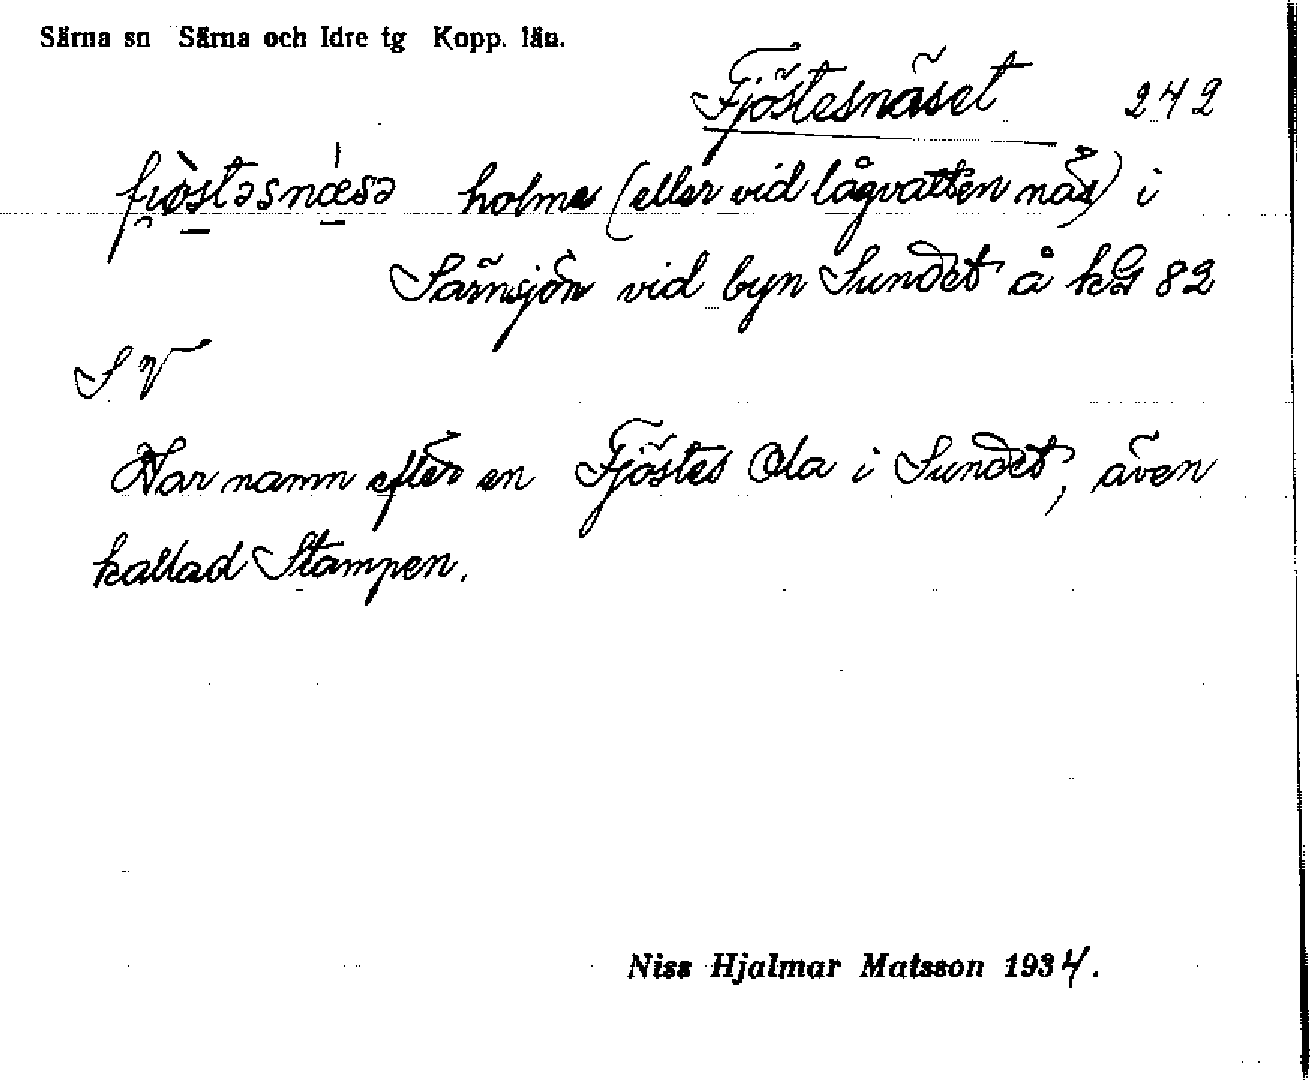 Särna sn Särna och Idre tg Kopp. län.
Fjöstesnäset 242
fi̯òstəsnǽsə holme (eller vid lågvatten näs) i
Särnsjön vid byn Sundet å kG 82
S V
Har namn efter en Fjöstes Ola i Sundet, även
kallad Stampen.
Niss Hjalmar Matsson 1934.